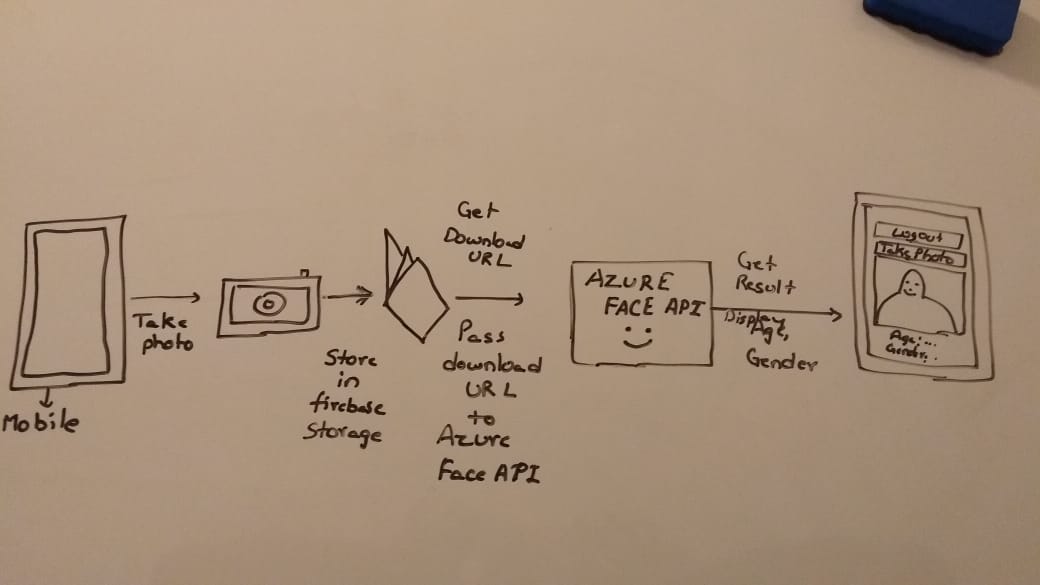 Mobile
Take
photo
Store
in
firebase
Storage
Get
Download
URL
Pass
download
URL
to
Azure
Face API
AZURE
FACE API
Get
Result
Display
Age,
Gender
Logout
Take Photo
Age:...
Gender:.